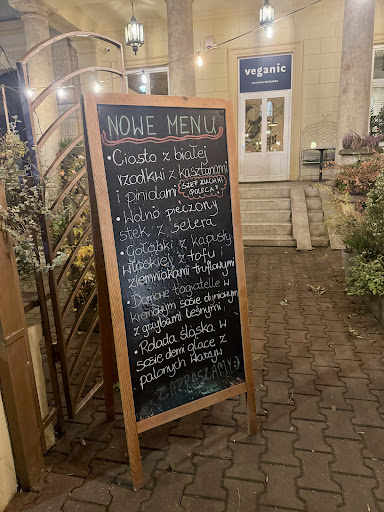 veganic
NOWE MENU
• Ciasto z białej
rzodkwi z kasztanami
i piniolami SZEF KUCHNI
POLECA!
• Wolno pieczony
stek z selera
• Gołąbki z kapusty
włoskiej z tofu i
ziemniakami truflowymi
• Domowe tagiatelle w
kremowym sosie dyniowym
z grzybami leśnymi
• Rolada śląska w
sosie demi glace z
palonych warzyw
ZAPRASZAMY:)